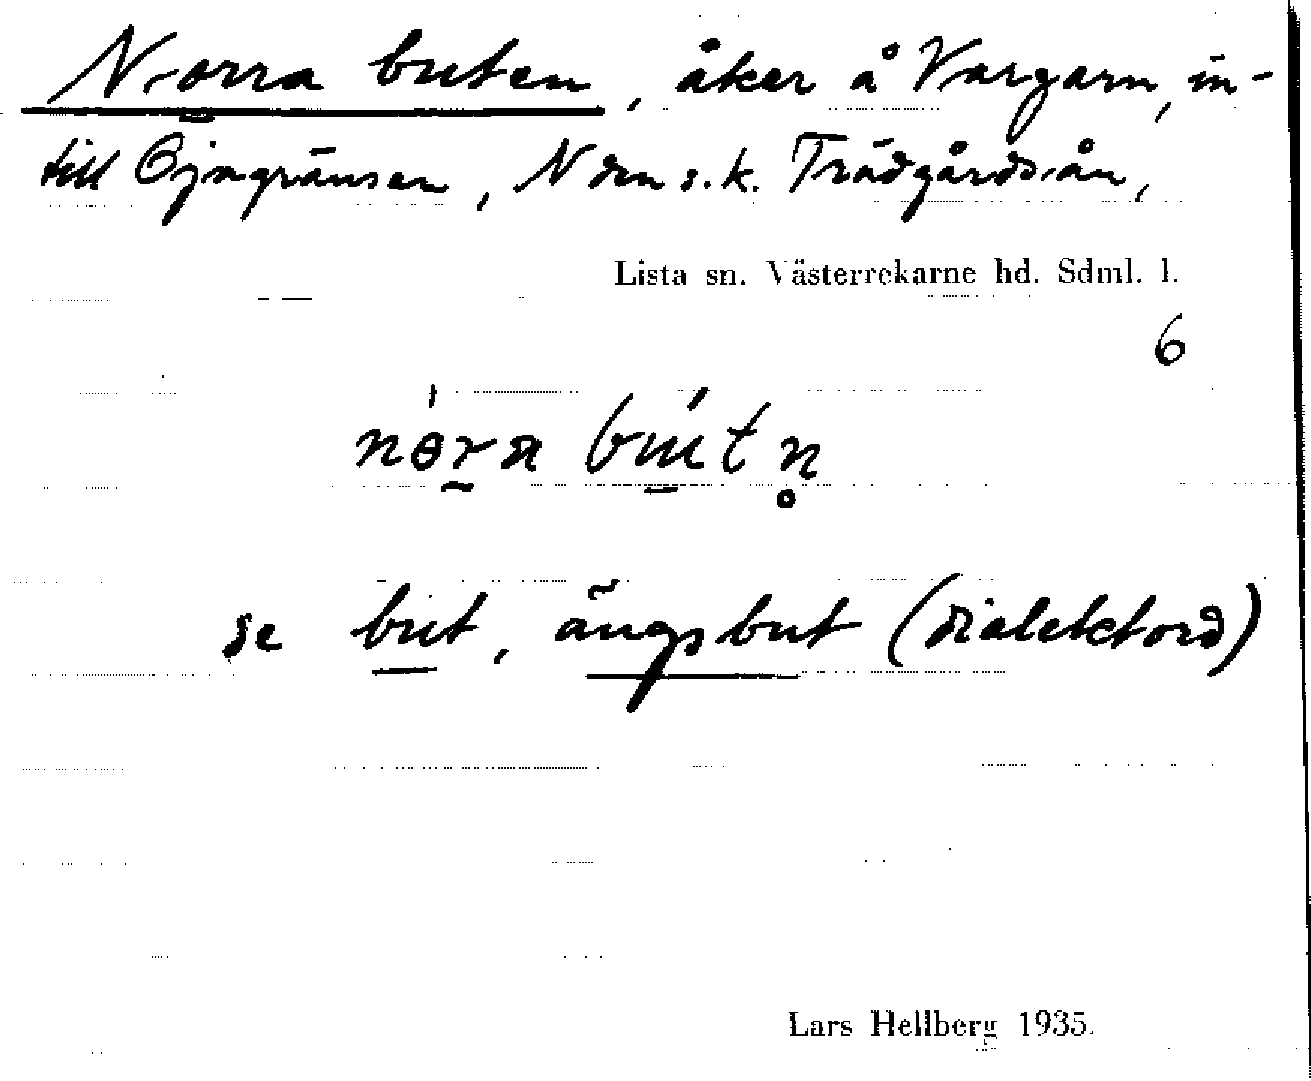 Norra buten, åker å Vargarn, in-
till Öjagränsen, N den s.k. Trädgårdsån,
Lista sn. Västerrekarne hd. Sdml. l.
6
se but, ängsbut (dialektord)
Lars Hellberg 1935.